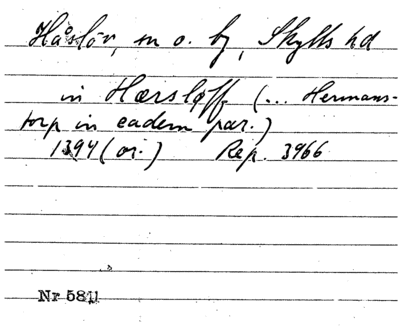 Håslöv, sn o. by, Skytts hd
in Hærsløff (... Hermans-
torp in eadem par.)
1394 (or.) Rep. 3966
Nr 5811